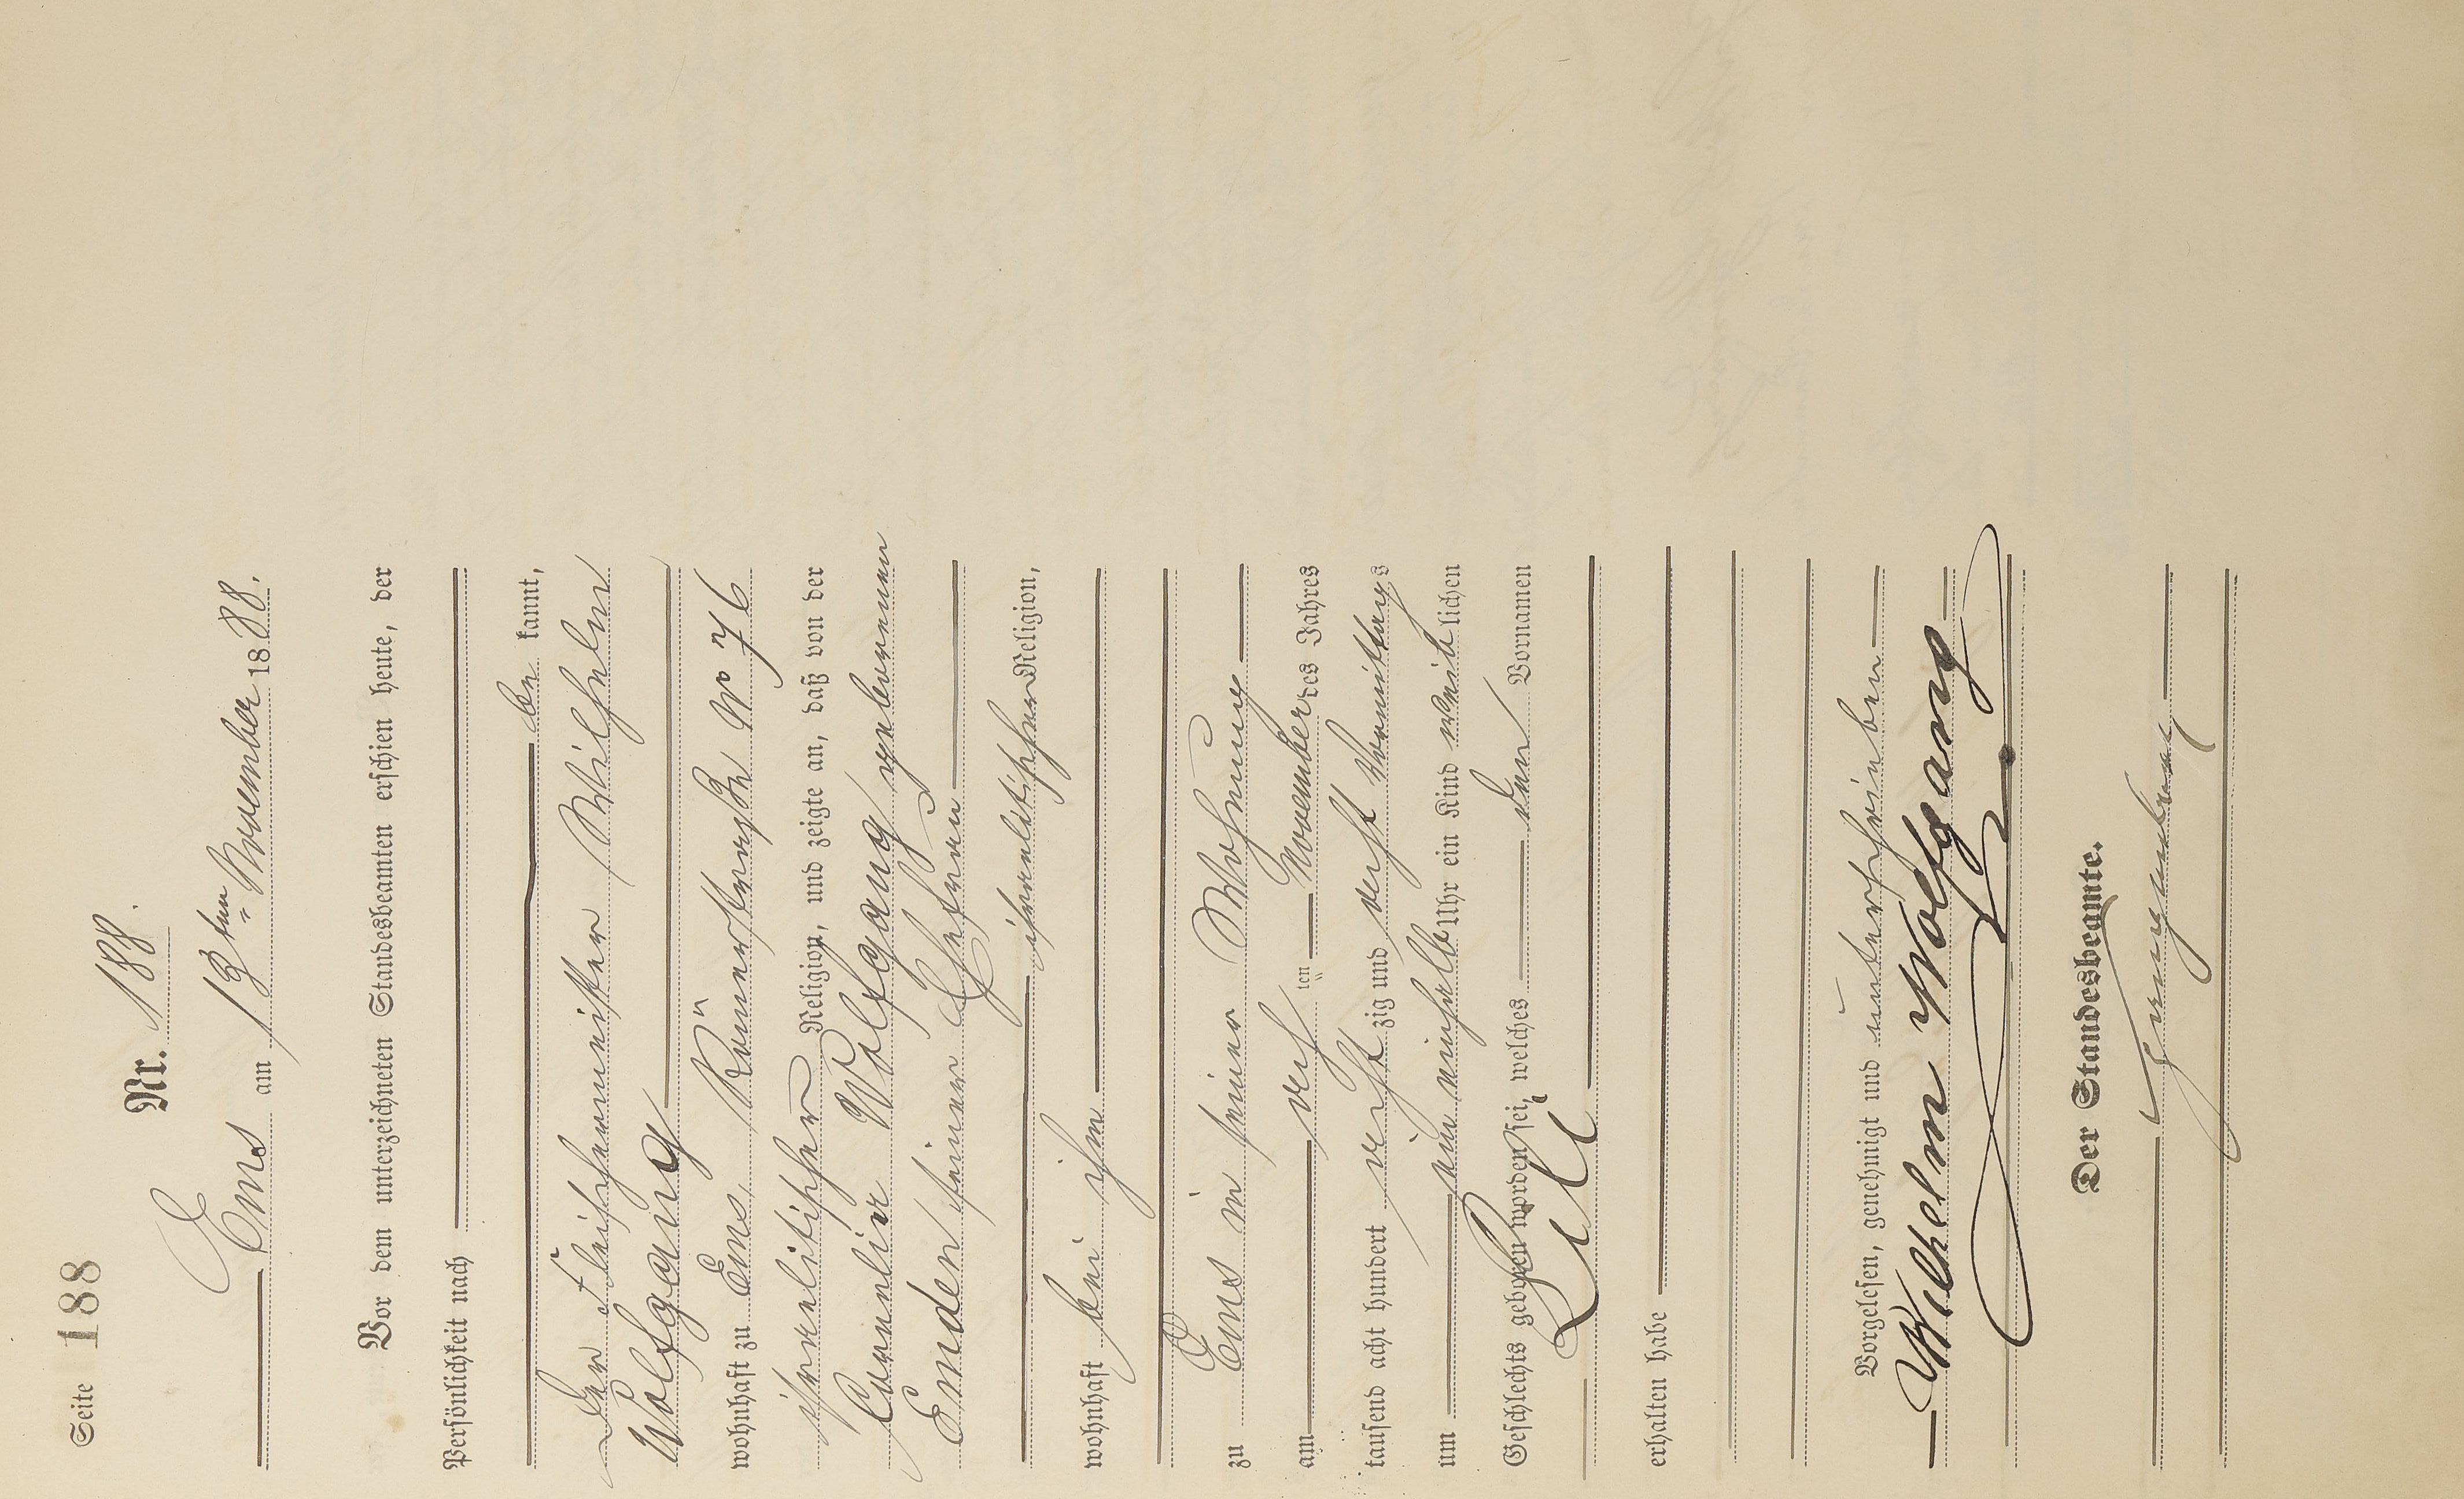 Seite 188
Nr. 188.
Ems am 13ten November 1888.
Vor dem unterzeichneten Standesbeamten erschien heute, der
Persönlichkeit nach
be kannt,
der Fleischermeister Wilhelm
Wolfgang
wohnhaft zu Ems, Römerstraße No 76
israelitischer Religion, und zeigte an, daß von der
Cornelia Wolfgang geborenen
Emden seiner Ehefrau
israelitischer Religion,
wohnhaft bei ihm
zu Ems in seiner Wohnung
am acht ten November des Jahres
tausend acht hundert acht zig und acht Vormittags
um Uhr ein Kind weib lichen
Geschlechts geboren worden sei, welches den Vornamen
Lilli
erhalten habe
Vorgelesen, genehmigt und unterschrieben
Wilhelm Wolfgang
Der Standesbeamte.